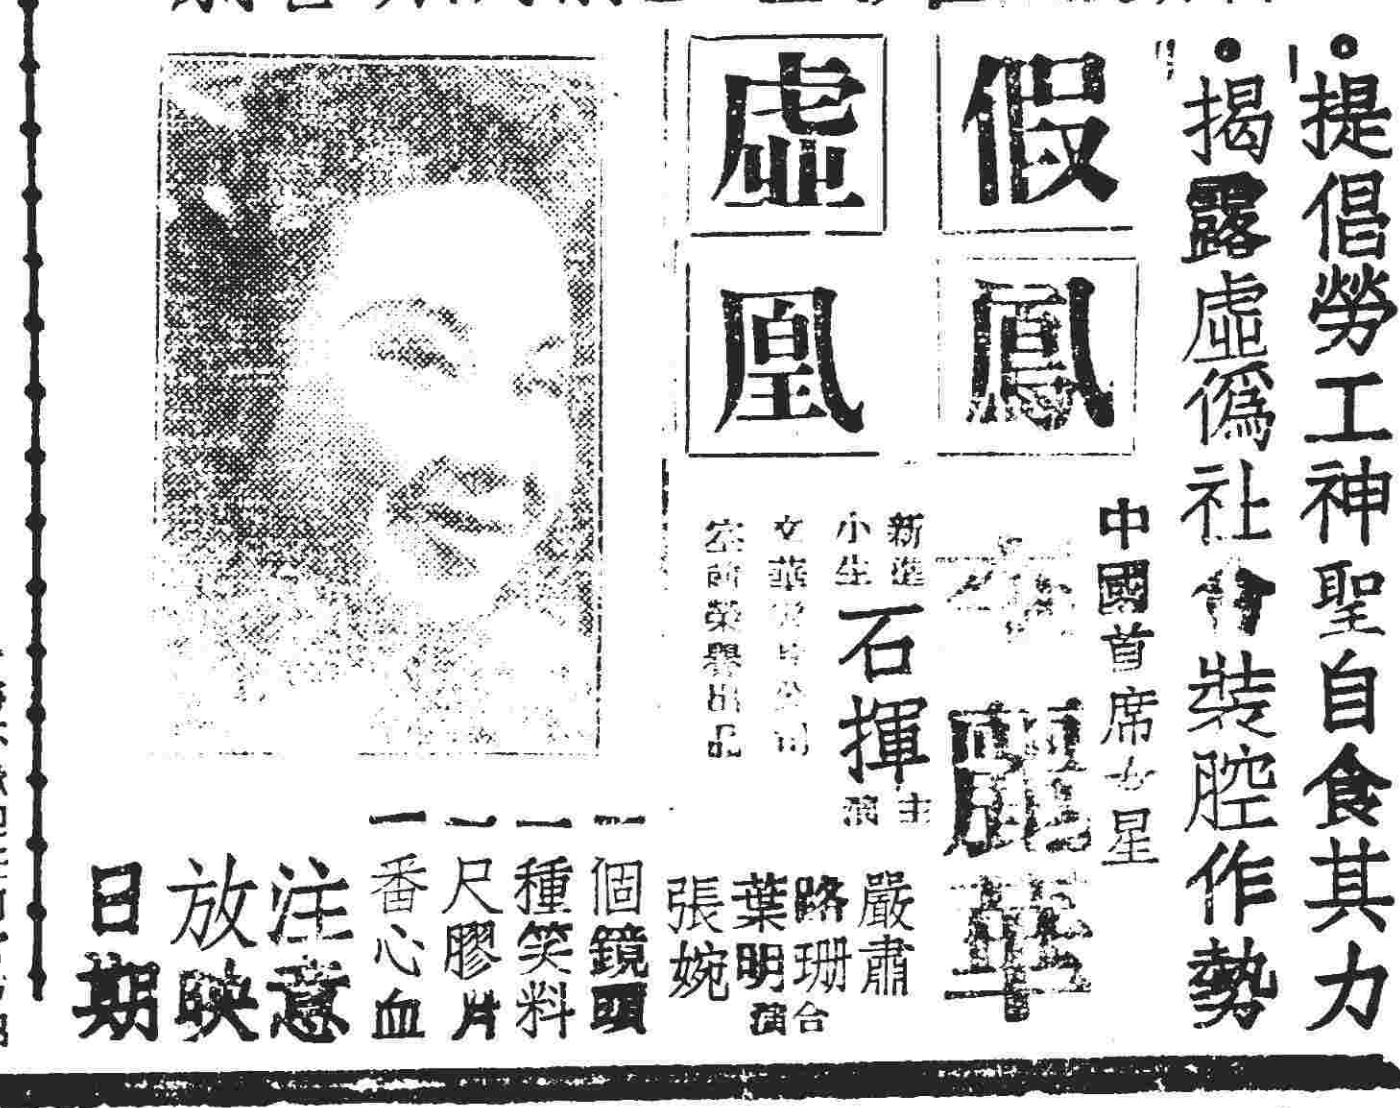 提倡勞工神聖自食其力
揭露虛僞社會裝腔作勢
假鳳
虛凰
中國首席女星
李麗華
新進
小生
石揮
主演
文華影片公司
空前榮譽出品
嚴肅
路珊
葉明
張婉
合演
一個鏡頭
一種笑料
一尺膠片
一番心血
注意
放映
日期